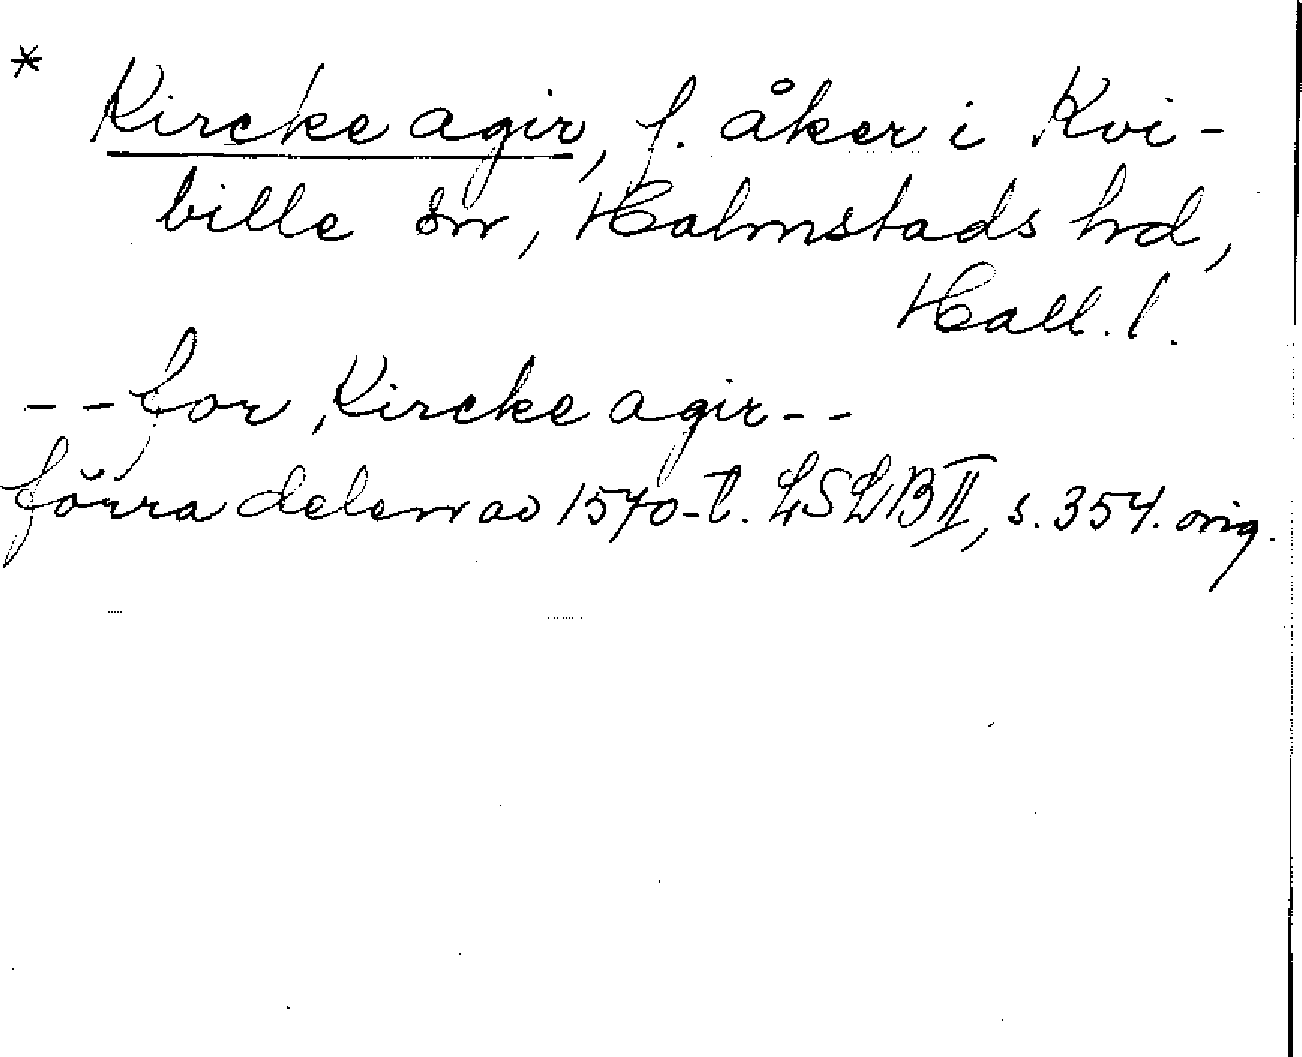 * Kircke agir, f. åker i Kvi-
bille sn, Halmstads hd,
Hall. l.
-- for Kircke agir --
förra delen av 1570-t. LSLB II, s. 354. orig.